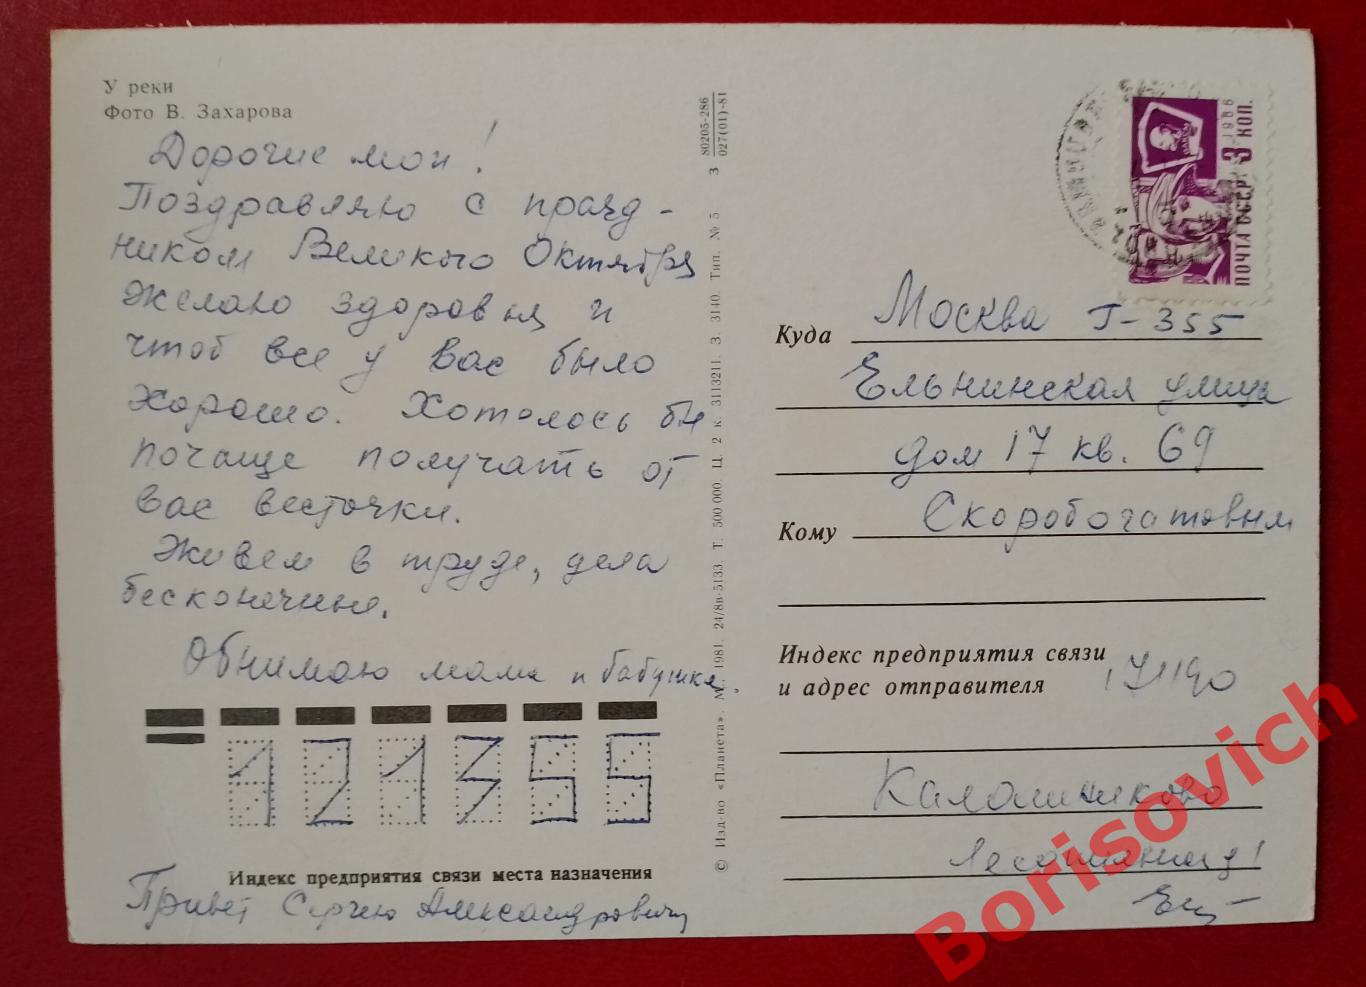 У реки
Фото В. Захарова
Дорогие мои!
Поздравляю с празд-
ником Великого Октября
Желаю здоровья и
чтоб все у вас было
хорошо. Хотелось бы
почаще получать от
вас весточки.
Живем в труде, дела
бесконечные.
Обнимаю мама и бабушка.
121355
Индекс предприятия связи места назначения
Привет Сергею Александровичу
© Изд-во «Планета». М., 1981. 24/8в-5133. Т. 500 000. Ц. 2 к. 3113211. З. 3140. Тип. № 5 З 80205-286
027(01)-81
ПОЧТА СССР 3 КОП.
1966
Куда Москва Г-355
Ельнинская улица
дом 17 кв. 69
Кому Скоробогатовым
Индекс предприятия связи
и адрес отправителя 171190
Калашниково
Borisovich